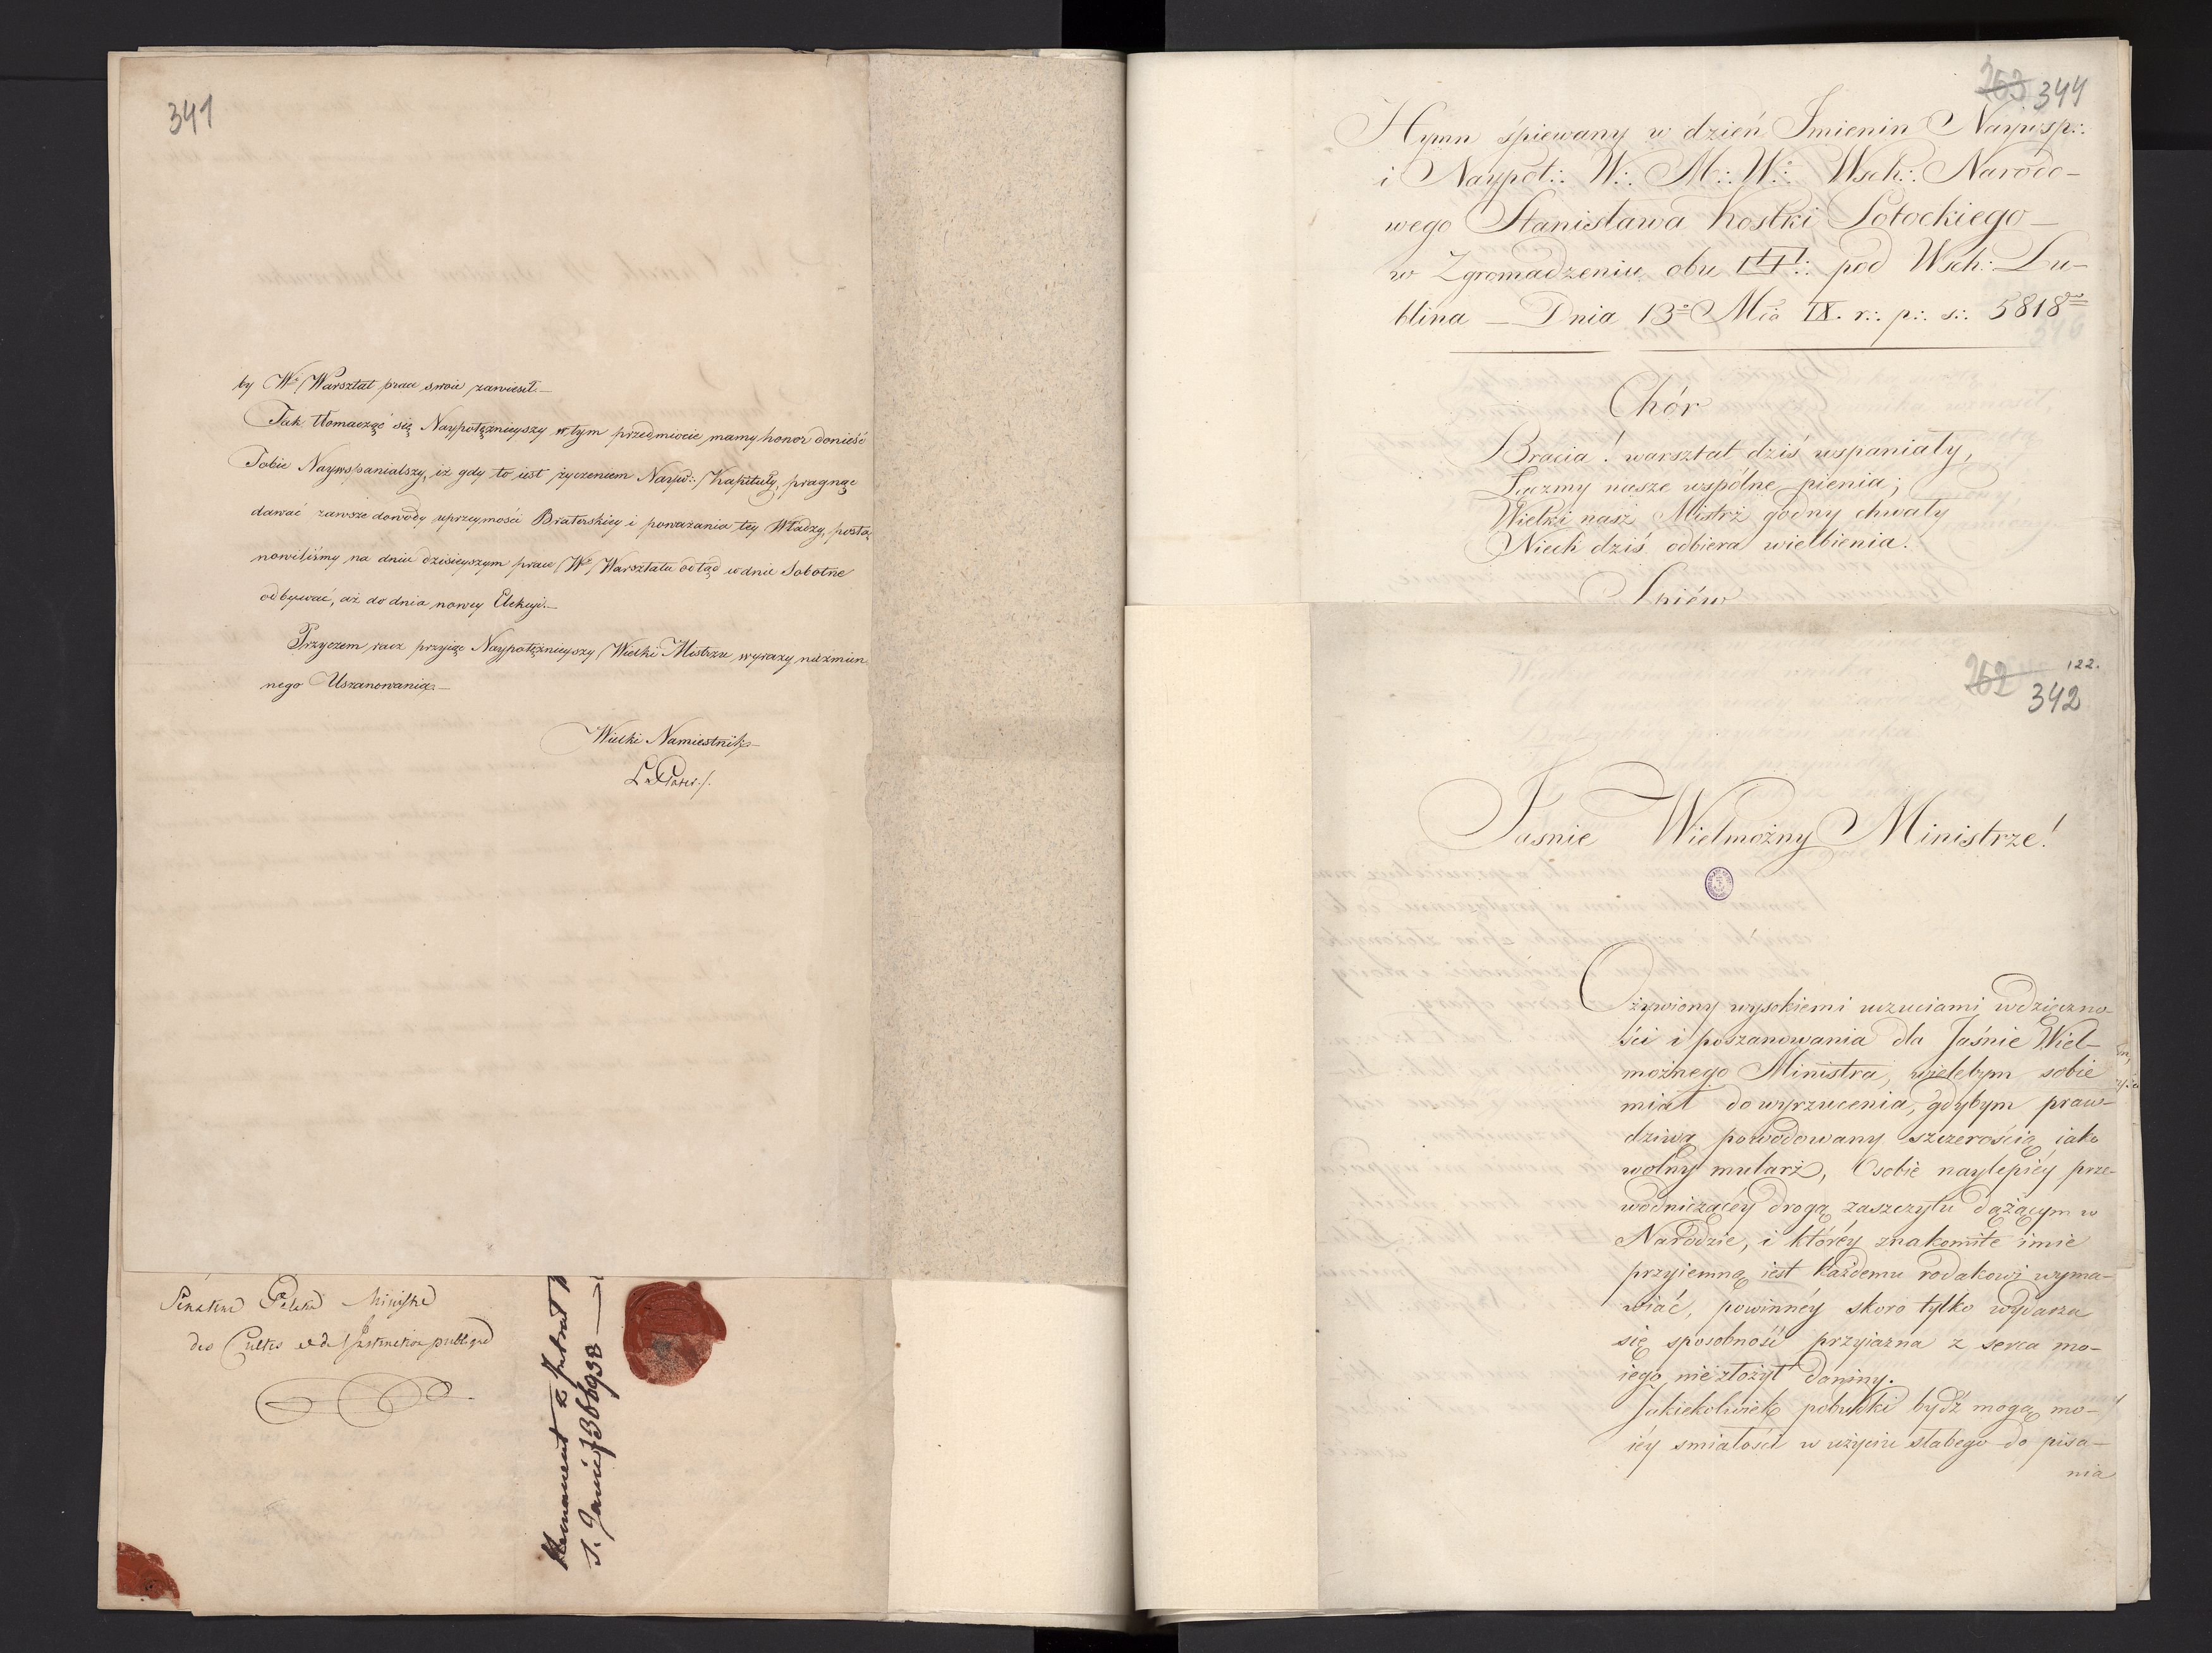 341
by W: Warsztat prace swoie zawiesił.—
Tak tłomacząc się Naypotężnieyszy w tym przedmiocie mamy honor donieść
Tobie Naywspanialszy, iż gdy to iest życzeniem Nayw:. Kapituły, pragnąc
dawać zawsze dowody uprzeymości Braterskiey i poważania tey Władzy, posta-
nowiliśmy na dniu dzisieyszym prace W: Warsztatu odtąd w dnie Sobotne
odbywać, aż do dnia nowey Elekcyi.—
Przyczem racz przyiąć Naypotężnieyszy Wielki Mistrzu wyrazy niezmien
nego Uszanowania.—
Wielki Namiestnik—
L. Plater./.
Ministre
des Cultes et de l'Instruction publique
Remanent z
263 344
Hymn śpiewany w dzień Imienin Naywsp:.
i Naypot:. W:. M:. W:. Wsch:. Narodo-
wego Stanisława Kostki Potockiego—
w Zgromadzeniu obu :. pod Wsch:. Lu-
blina — Dnia 13º Mca IX. r:. p:. s:. 5818
Chór
Bracia! warsztat dziś wspaniały,
Łączmy nasze wspólne pienia;
Wielki nasz Mistrz godny chwały
Niech dziś odbiera wielbienia.
Śpiéw
122.
262 342
Jasnie Wielmożny Ministrze!
Ożywiony wysokiemi uczuciami wdzięczno-
ści i poszanowania dla Jaśnie Wiel-
możnego Ministra, wielebym sobie
miał do wyrzucenia, gdybym praw-
dziwą powodowany szczerością jako
wolny mularz, Osobie naylepiéy prze-
wodniczącéy drogą zaszczytu dążącym w
Narodzie, i któréy znakomite imie
przyiemną iest każdemu rodakowi wyma-
wiać, powinnéy skoro tylko wydarza
się sposobność przyiazna z serca mo-
iego nie złożył daniny.
Jakiekolwiek pobudki bydź mogą mo-
iéy smiałości w użyciu słabego do pisa-
nia